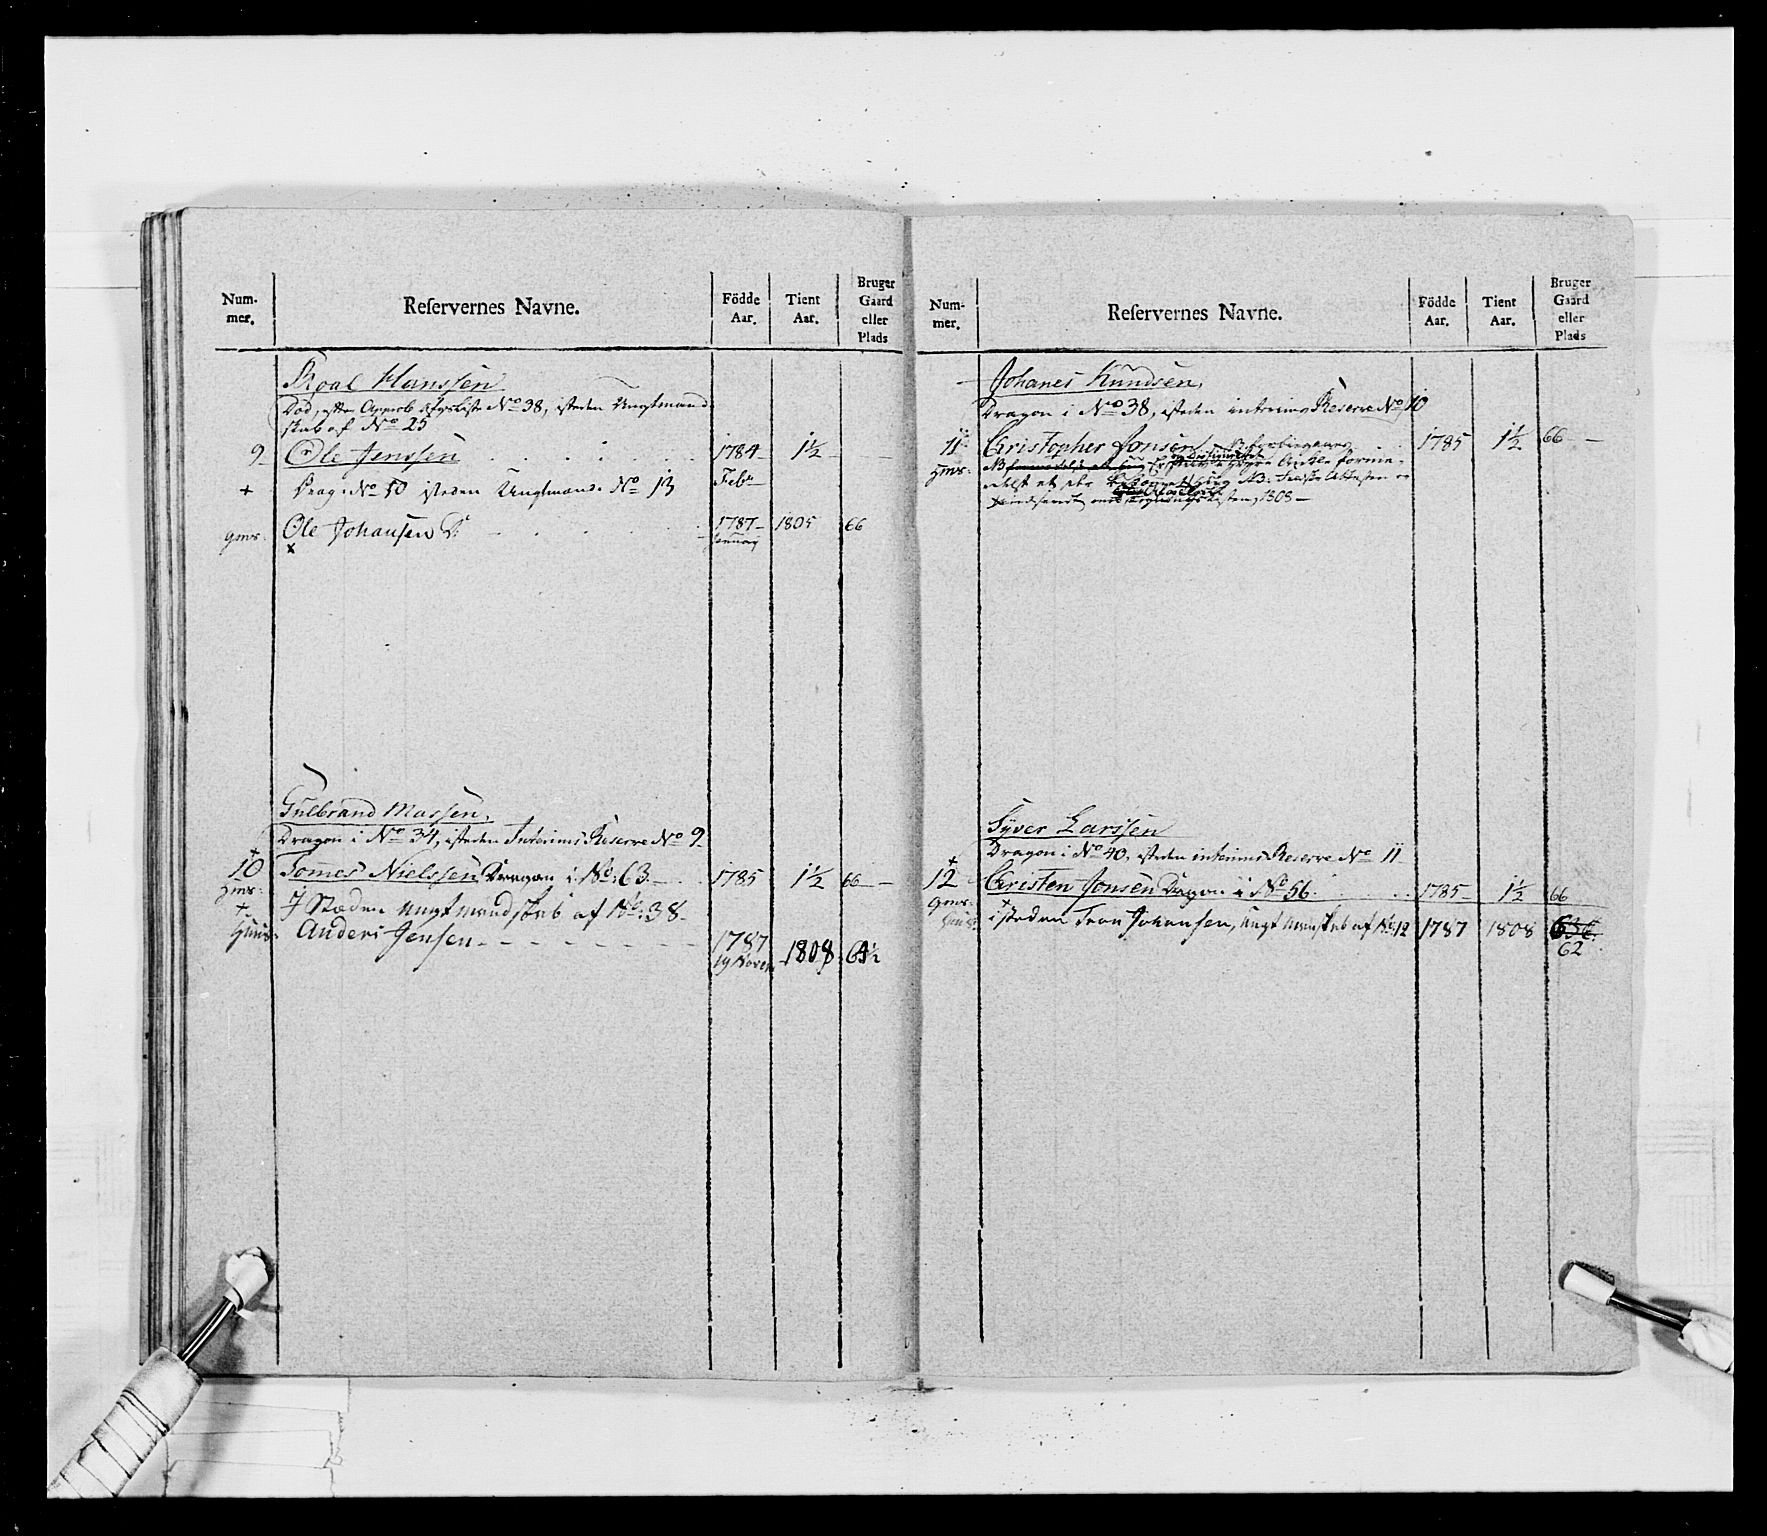 Num-
mer.
Reservernes Navne.
Födde
Aar.
Tient
Aar.
Bruger
Gaard
eller
Plads
Roal Hanssen
Död, efter Approb. Afgs Liste No 38, isteden Ungtmand
skab af No 25
9 Ole Jenssen 1784 1½
+ Drag: No 50 isteden Ungtmand No 13 Febr
Ole Johansen 1787 1805 66
x Januarj
Gulbrand Massen,
Dragon i No 34, isteden Interims Reserve No 9
+
10 Tommes Nielssen Dragon i No: 63. 1785 1½ 66
+ I Stæden Ungtmandskab af No: 38
Anders Jensen 1787 1808 64½
19 Novem
Num-
mer.
Reservernes Navne.
Födde
Aar.
Tient
Aar.
Bruger
Gaard
eller
Plads
Johanes Knudsen,
Dragon i No 38, isteden interims Reserve No 10
11 Christopher Jonsen 1785 1½ 66
1808
Syver Larssen
Dragon i No 40, isteden interims Reserve No 11
+
12 Christen Jonsen Dragon i No 56. 1785 1½ 66
isteden Johansen, Ungt Manskab af No 12 1787 1808
62